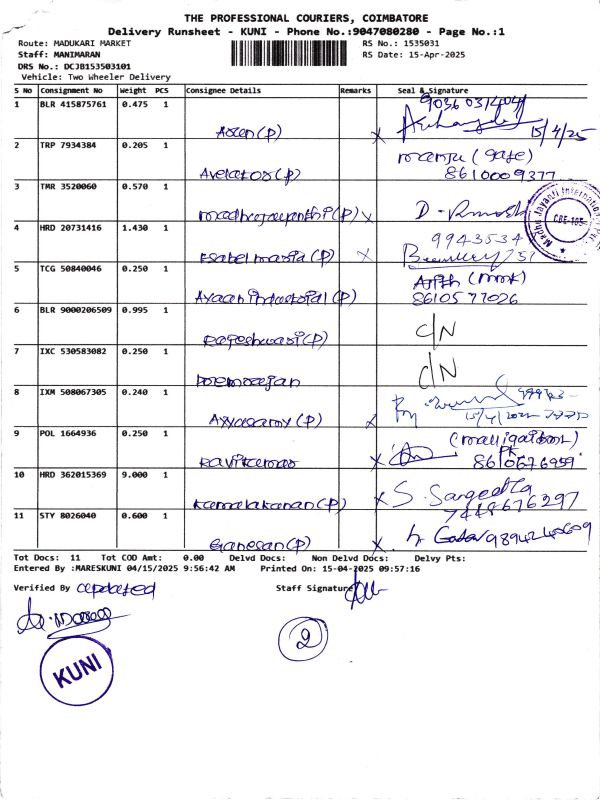 THE PROFESSIONAL COURIERS, COIMBATORE
Delivery Runsheet - KUNI - Phone No.:9047080280 - Page No.:1
Route: MADUKARI MARKET RS No.: 1535031
Staff: MANIMARAN RS Date: 15-Apr-2025
DRS No.: DCJB153503101
Vehicle: Two Wheeler Delivery
S No Consignment No Weight PCS Consignee Details Remarks Seal & Signature
1 BLR 415875761 0.475 1
15/4/25
2 TRP 7934384 0.205 1 manju (gate)
Avelatos(P) 8610009377
3 TMR 3520060 0.570 1
madhujayanthi(P) x
Madhu Jayanti International
CBE-105
4 HRD 20731416 1.430 1 9943534
Esabel maria(P) x
5 TCG 50840046 0.250 1
Ayaan industrial(P) 8610577026
6 BLR 9000206509 0.995 1 C/N
Rajeshwari(P)
7 IXC 530583082 0.250 1 C/N
Premrajan
8 IXM 508067305 0.240 1
Ayyasamy(P) x
9 POL 1664936 0.250 1
Ravikumar x 8610676959
10 HRD 362015369 9.000 1
Kamalakanan(P) x S. Sangeetha
7448676297
11 STY 8026040 0.600 1
Ganesan(P) x 9894240609
Tot Docs: 11 Tot COD Amt: 0.00 Delvd Docs: Non Delvd Docs: Delvy Pts:
Entered By :MARESKUNI 04/15/2025 9:56:42 AM Printed On: 15-04-2025 09:57:16
Verified By updated Staff Signature
KUNI
2